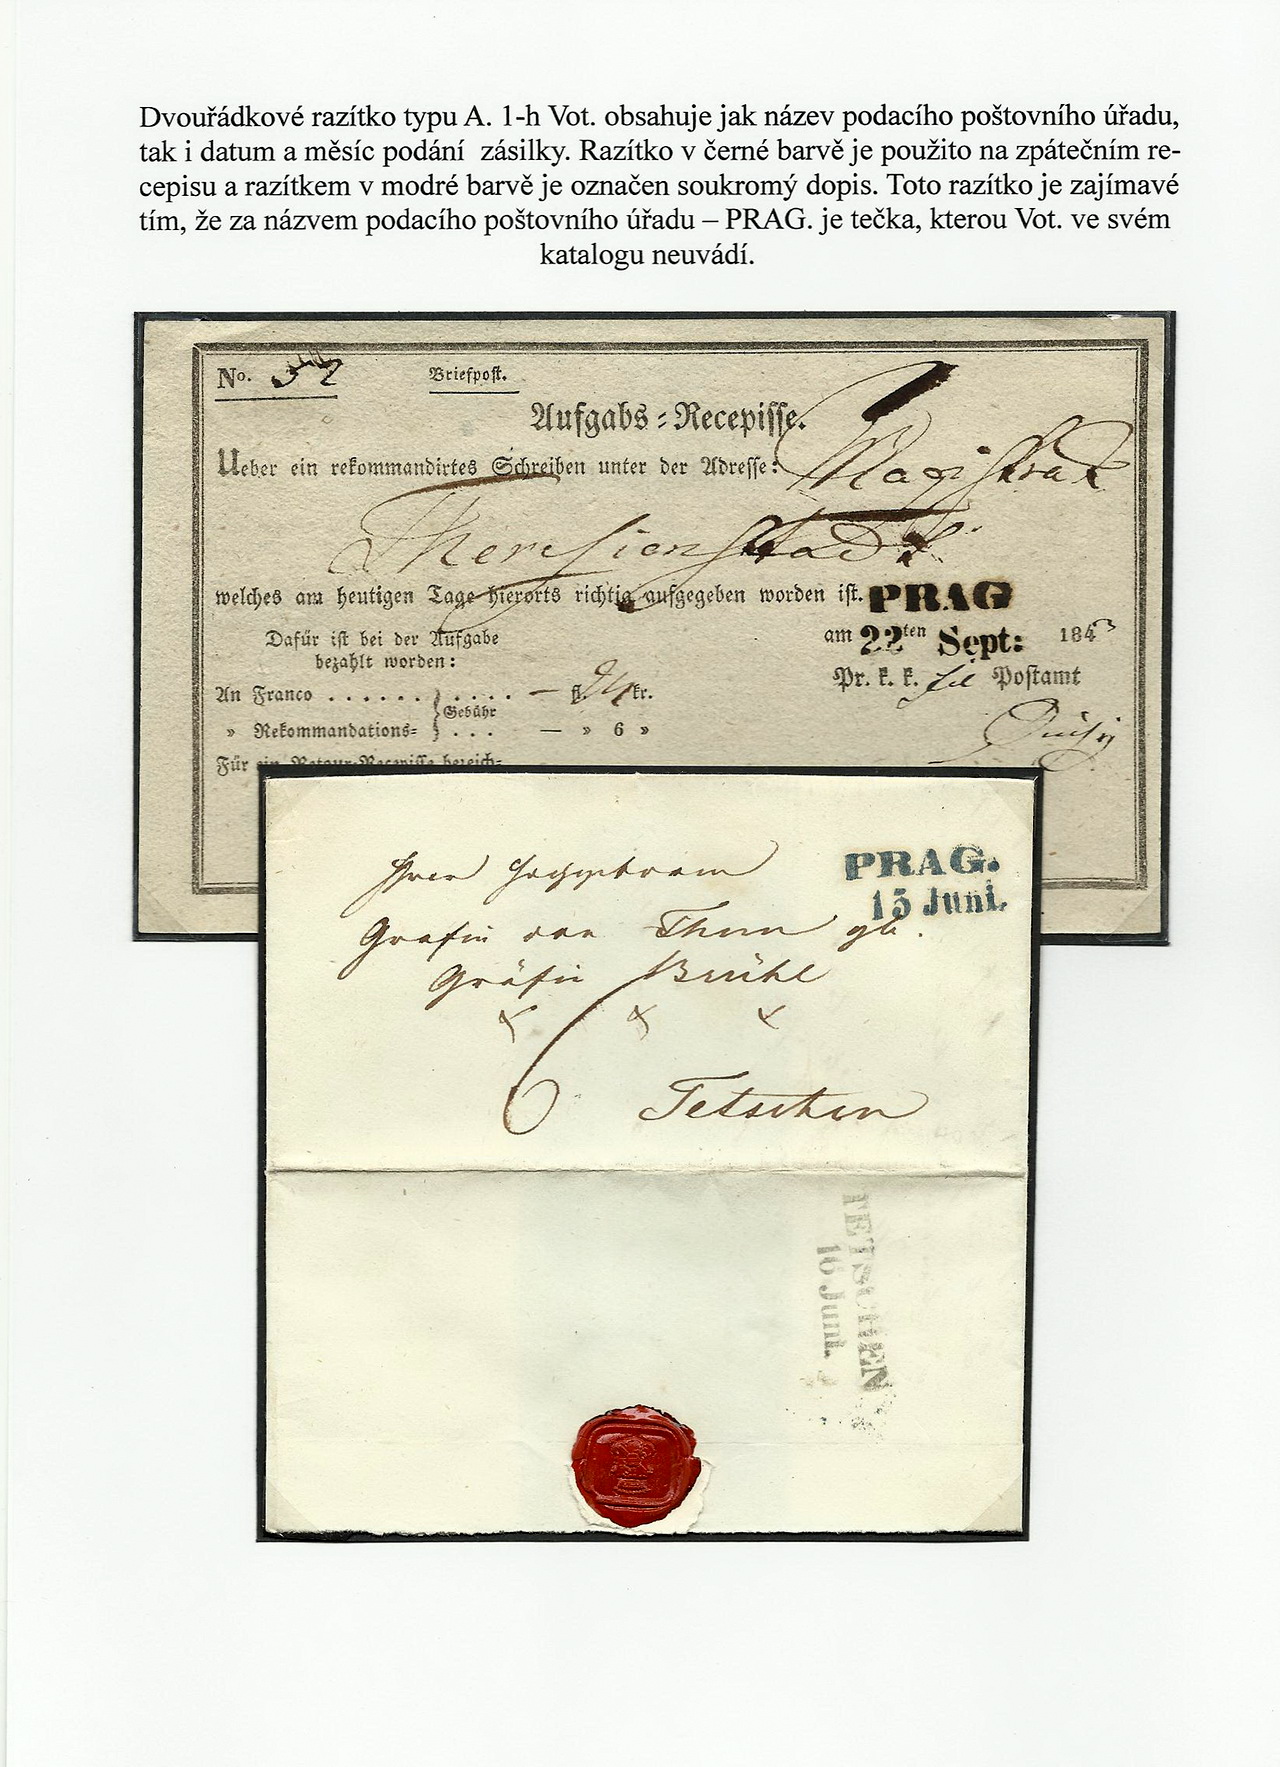 Dvouřádkové razítko typu A. 1-h Vot. obsahuje jak název podacího poštovního úřadu,
tak i datum a měsíc podání  zásilky. Razítko v černé barvě je použito na zpátečním re-
cepisu a razítkem v modré barvě je označen soukromý dopis. Toto razítko je zajímavé
tím, že za názvem podacího poštovního úřadu – PRAG. je tečka, kterou Vot. ve svém
katalogu neuvádí.
No.
Briefpost.
Aufgabs-Recepisse.
Ueber ein rekommandirtes Schreiben unter der Adresse: Magistrat
Theresienstadt
welches am heutigen Tage hierorts richtig aufgegeben worden ist. PRAG
Dafür ist bei der Aufgabe
bezahlt worden:
am 22ten Sept: 1843
Pr. k. k. Postamt
An Franco . . . . . . } Gebühr . . . . — fl. kr.
» Rekommandations= } . . . — » 6 »
Für ein Retour-Recepisse bezeich-
PRAG.
15 Juni.
Gräfin von Thun gb.
Gräfin Brühl
6 Tetschen
TETSCHEN
16 Juni.